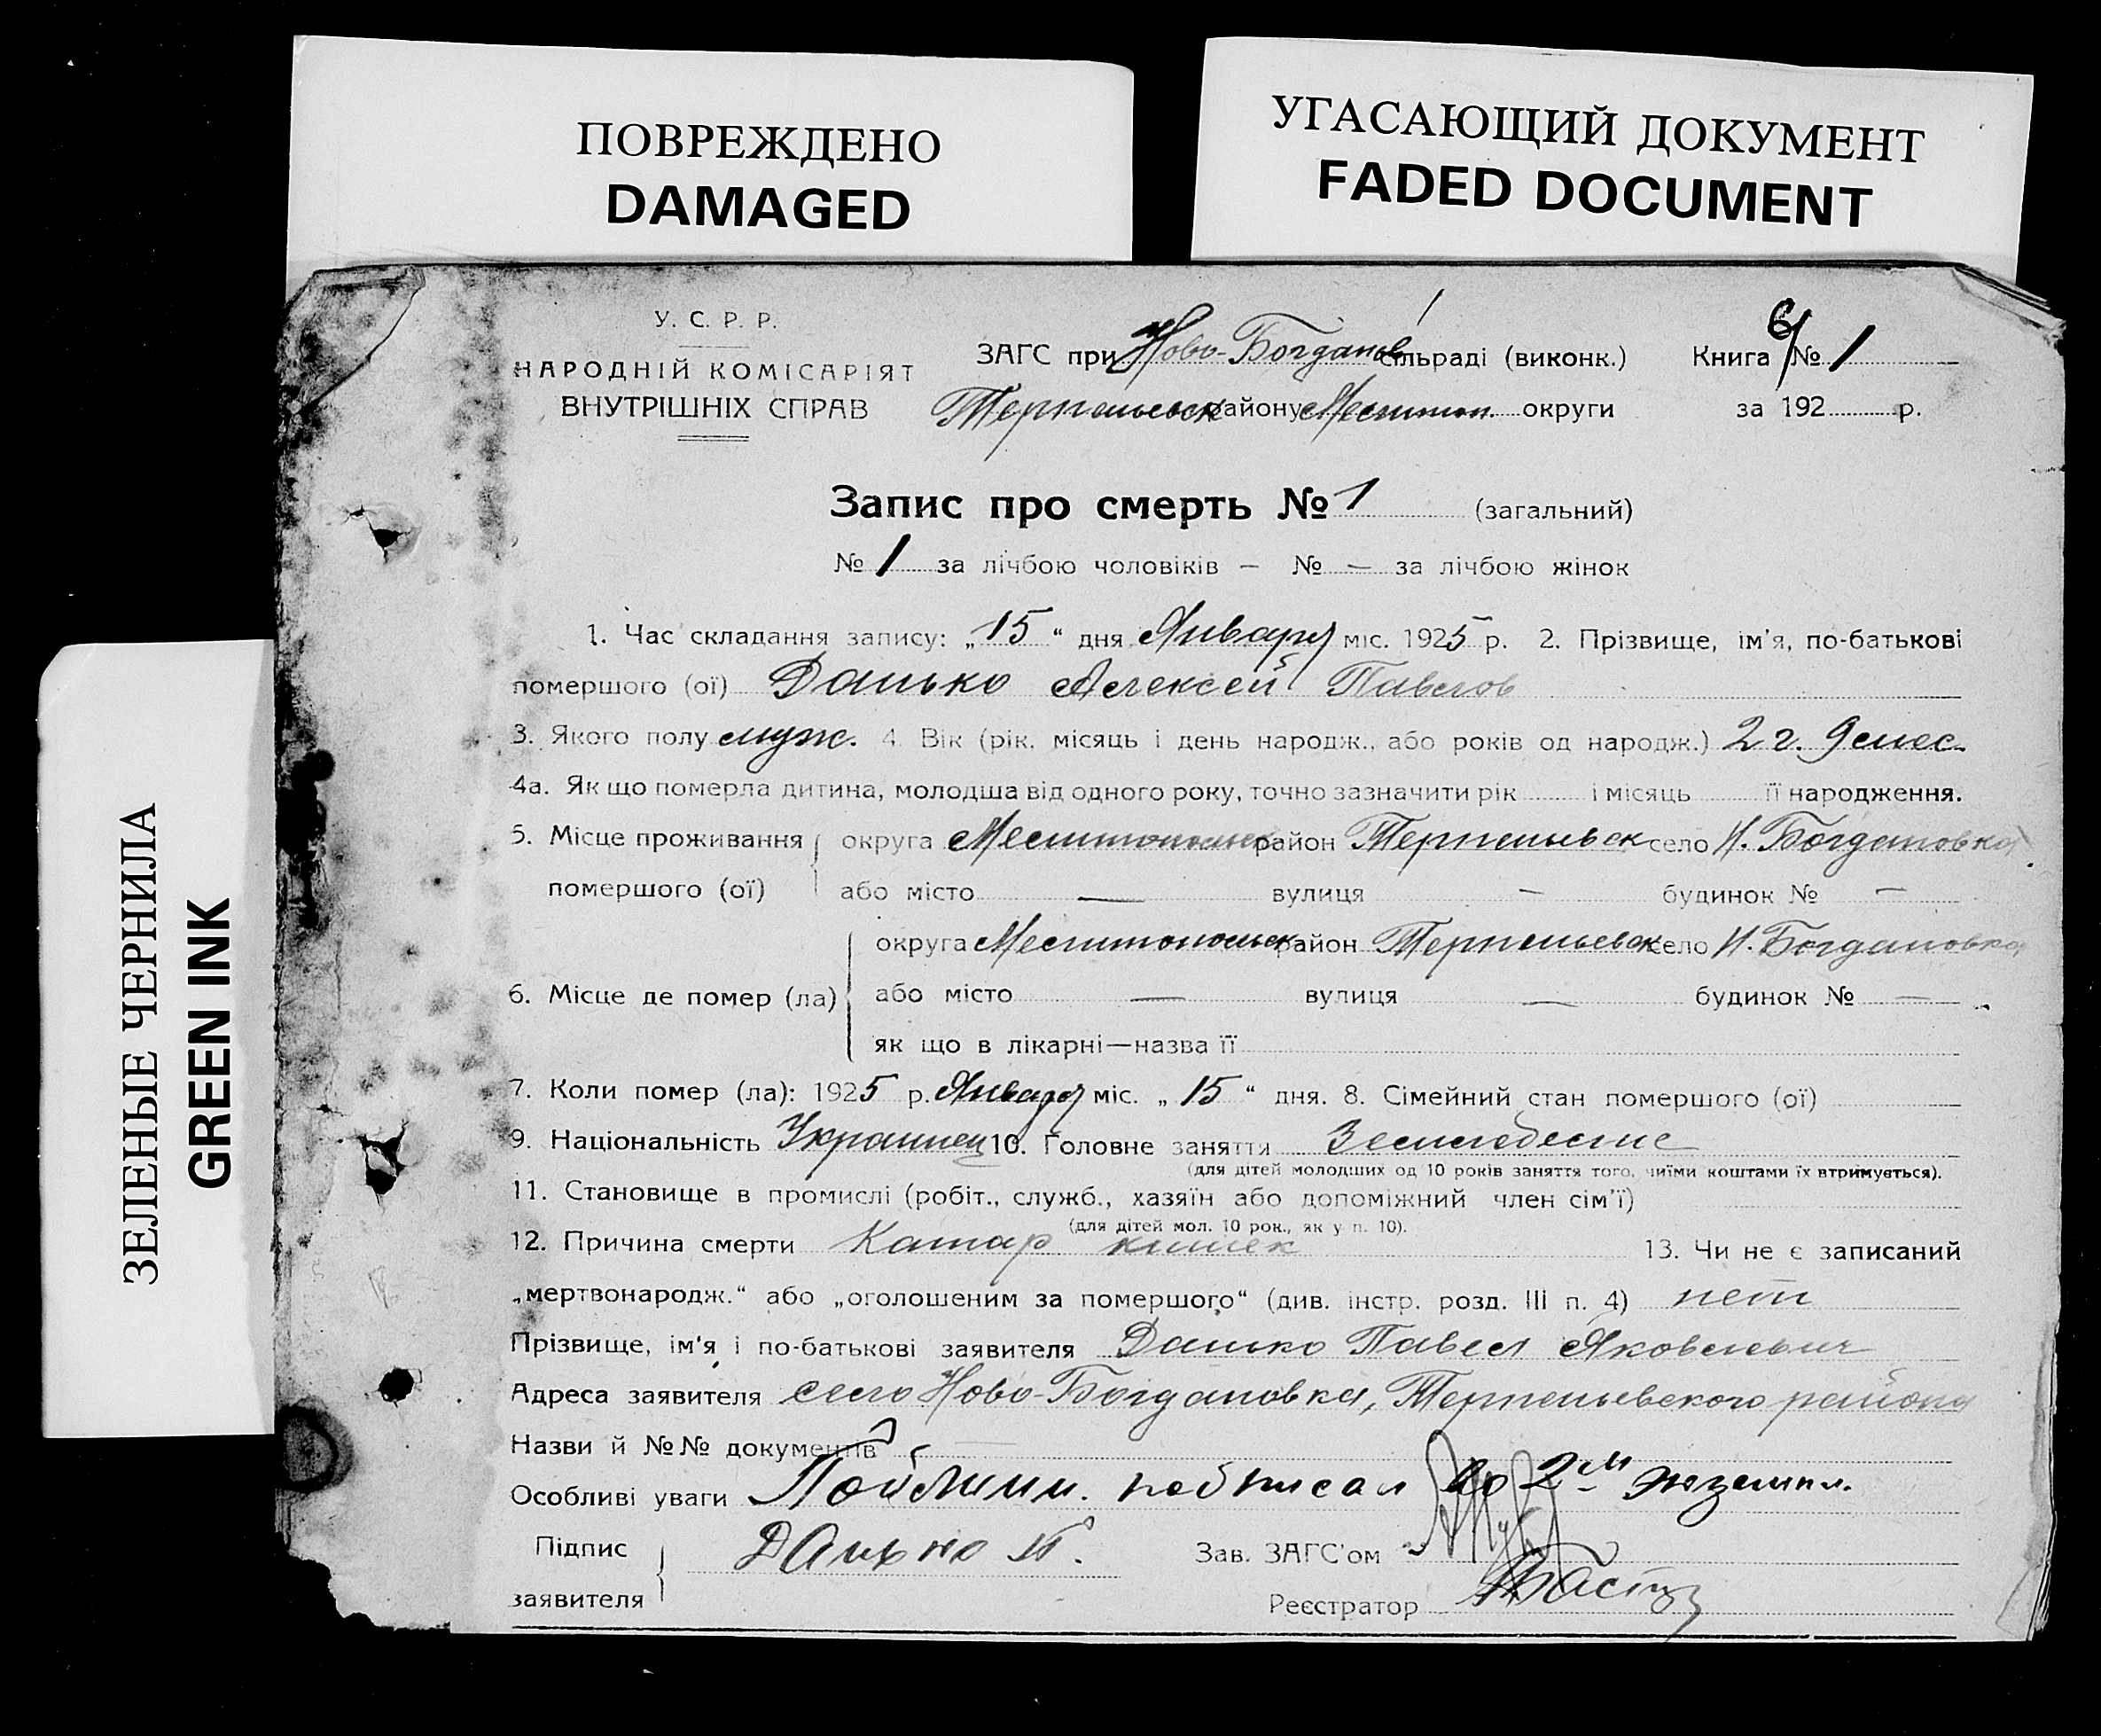 ПОВРЕЖДЕНО
DAMAGED
УГАСАЮЩИЙ ДОКУМЕНТ
FADED DOCUMENT
ЗЕЛЕНЫЕ ЧЕРНИЛА
GREEN INK
У. С. Р. Р.
НАРОДНІЙ КОМІСАРІЯТ
ВНУТРІШНІХ СПРАВ
ЗАГС при Ново-Богданов сільраді (виконк.)
Терпеньевск району Мелитоп. округи
Книга № 1
за 192 р.
Запис про смерть № 1 (загальний)
№ 1 за лічбою чоловіків — № — за лічбою жінок
1. Час складання запису: „15“ дня Января міс. 1925 р. 2. Прізвище, ім'я, по-батькові
помершого (ої) Данько Алексей Павлов
3. Якого полу муж. 4. Вік (рік, місяць і день народж., або років од народж.) 2 г. 9 мес.
4а. Як що померла дитина, молодша від одного року, точно зазначити рік і місяць її народження.
5. Місце проживання округа Мелитопольск район Терпеньевск село Н. Богдановка
помершого (ої) або місто — вулиця — будинок № —
округа Мелитопольск район Терпеньевск село Н. Богдановка
6. Місце де помер (ла) або місто — вулиця — будинок № —
як що в лікарні—назва її
7. Коли помер (ла): 1925 р. Января міс. „15“ дня. 8. Сімейний стан помершого (ої)
9. Національність Украинец 10. Головне заняття Земледелие
(для дітей молодших од 10 років заняття того, чиїми коштами їх втримується).
11. Становище в промислі (робіт., служб., хазяїн або допоміжний член сім'ї)
(для дітей мол. 10 рок., як у п. 10).
12. Причина смерти Катар кишек 13. Чи не є записаний
„мертвонародж.“ або „оголошеним за помершого“ (див. інстр. розд. III п. 4) нет
Прізвище, ім'я і по-батькові заявителя Данько Павел Яковлевич
Адреса заявителя село Ново-Богдановка, Терпеньевского района
Назви й №№ документів
Особливі уваги подписал во 2-м экземпл.
Підпис
заявителя
Данько П.
Зав. ЗАГС'ом
Реєстратор